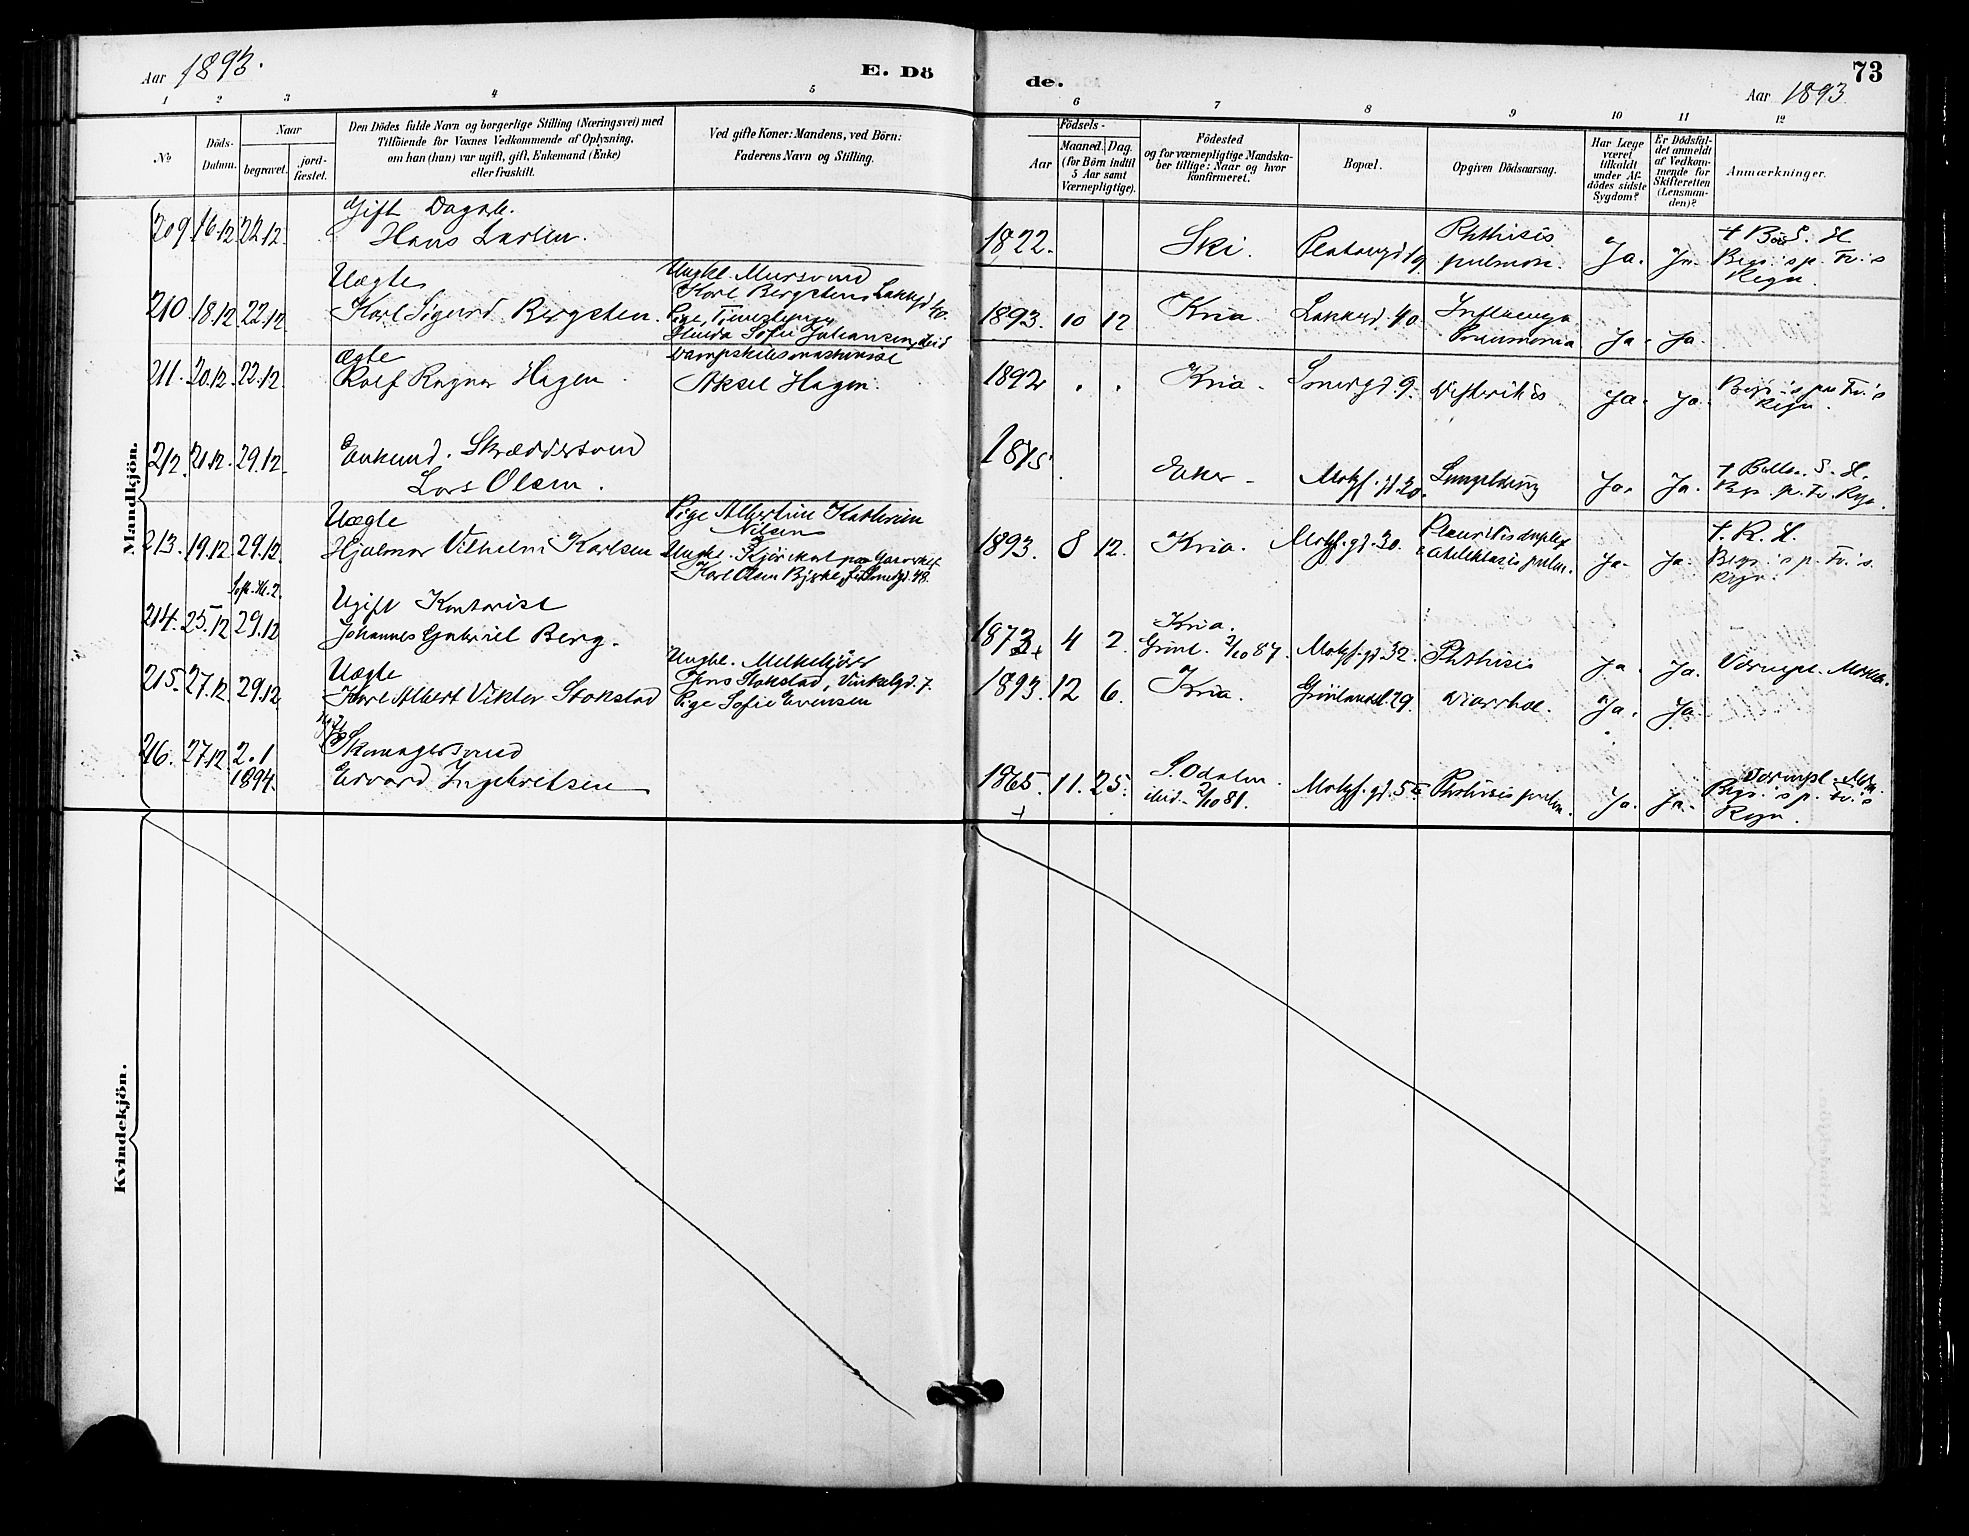 Aar 1893.
E. Dö
de.
73
Aar 1893
1 2 3 4 5 6 7 8 9 10 11 12
No
Döds-
Datum.
Naar
begravet.
jord-
fæstet.
Den Dödes fulde Navn og borgerlige Stilling (Næringsvei) med
Tilföiende for Voxnes Vedkommende af Oplysning,
om han (hun) var ugift, gift, Enkemand (Enke)
eller fraskilt.
Ved gifte Koner: Mandens, ved Börn:
Faderens Navn og Stilling.
Födsels-
Aar
Maaned.
Dag.
(for Börn indtil
5 Aar samt
Værnepligtige).
Födested
og for værnepligtige Mandska-
ber tillige: Naar og hvor
konfirmeret.
Bopæl.
Opgiven Dödsaarsag.
Har Læge
været
tilkaldt
under Af-
dödes sidste
Sygdom?
Er Dödsfal-
det anmeldt
af Vedkom-
mende for
Skifteretten
(Lensman-
den)?
Anmærkninger.
Mandkjön.
209. 16.12. 22.12.
Gift Dagarb.
Hans Larsen.
1822.
Ski.
Phthisis
pulmon.
Ja. Ja.
Regn.
210. 18.12. 22.12.
Uægte
Karl Sigurd Bergsten.
Ungkl. Mursvend
Karl Bergstens Lakkegd 40.
Pige, Tjenestepige
Sofie Johansen, ibid
1893. 10 12
Kria
Lakkegd. 40.
Influenza
Pneumonia
Ja. Ja.
211. 20.12. 22.12.
Ægte
Rolf Ragnar Hagen.
Dampskibsmaskinist
Aksel Hagen.
1892 . .
Kria.
Smedgd. 9.
Difteritis.
Ja. Ja.
Regn.
212. 21.12. 29.12.
Enkemd. Skræddersvend
Lars Olsen.
1815.
Eker.
Motzf. gd. 20.
Ja. Ja.
213. 19.12. 29.12.
Uægte
Hjalmar Vilhelm Karlsen
Pige Albertine Kathrine
Nilsen
Ungkl.
Karl Olsen Bjerke, Smedgd. 48.
1893. 8 12.
Kria.
Motzf. gd. 30.
Pleuritis duplex
atelektasis pulm.
Ja. Ja.
† R. H.
Regn.
214. 25.12 29.12
Ugift Kontorist
Johannes Gabriel Berg.
1873 4 2.
Kria.
Grönl. 2/10 87.
Motzf. gd. 32.
Phthisis
Ja. Ja.
215. 27.12. 29.12
Uægte
Karl Albert Viktor Stokstad
Ungkl. Melkekjörer
Jens Stokstad, Vinkelgd. 7.
Pige Sofie Evensen
1893. 12 6.
Kria.
Grönlandsl. 29.
Diarrhoe.
Ja. Ja.
216. 27.12. 2.1
1894.
Skomagersvend
Edvard Ingebretsen
1865. 11. 25.
S. Odalen.
ibid. 2/10 81.
Motzf. gd. 5
Phthisis pulm.
Ja. Ja.
Regn.
Kvindekjön.